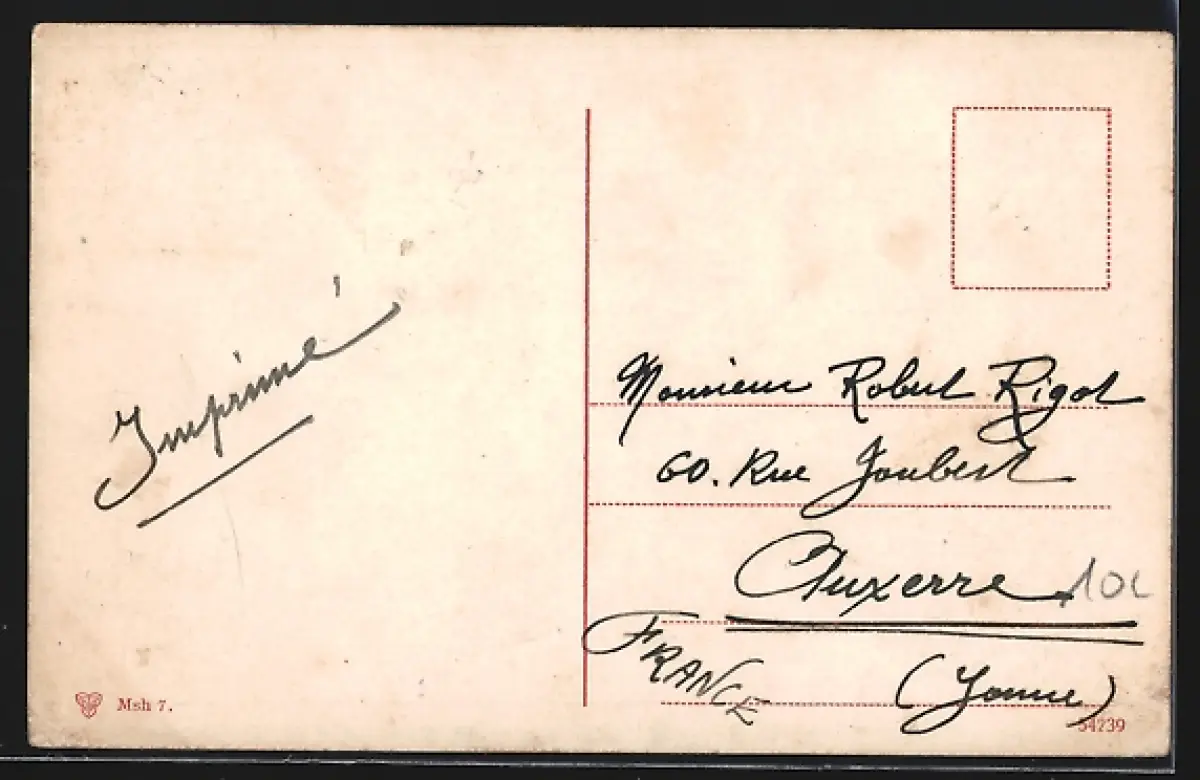 Imprimé
Monsieur Robert Rigot
60. Rue Joubert
Auxerre
FRANCE
(Yonne)
Msh 7.
54239